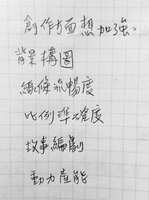 創作方面想加強。
背景構圖
線條流暢度
比例準確度
故事編劇
動力產能